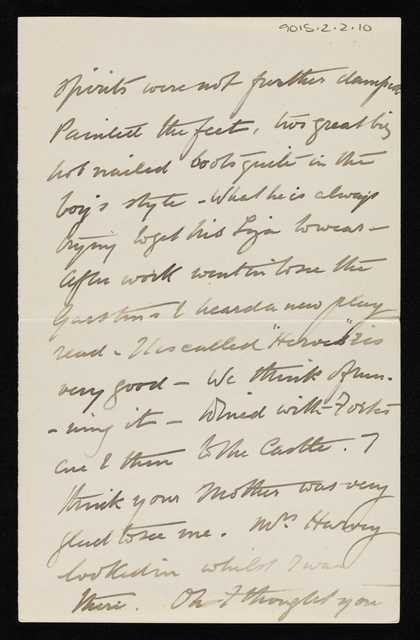 9015.2.2.10
spirits were not further damped
Painted the feet, two great big
hob nailed boots quite in the
boy's style - What he is always
trying to get his Liza to wear -
After work went in to see the
& heard a new play
read - It is called "Herve" & is
very good - We think of run-
-ning it - Dined with Forbes
and & then to the Castle. I
think your Mother was very
glad to see me. Mrs Harvey
looked in whilst I was
there. Oh I thought you